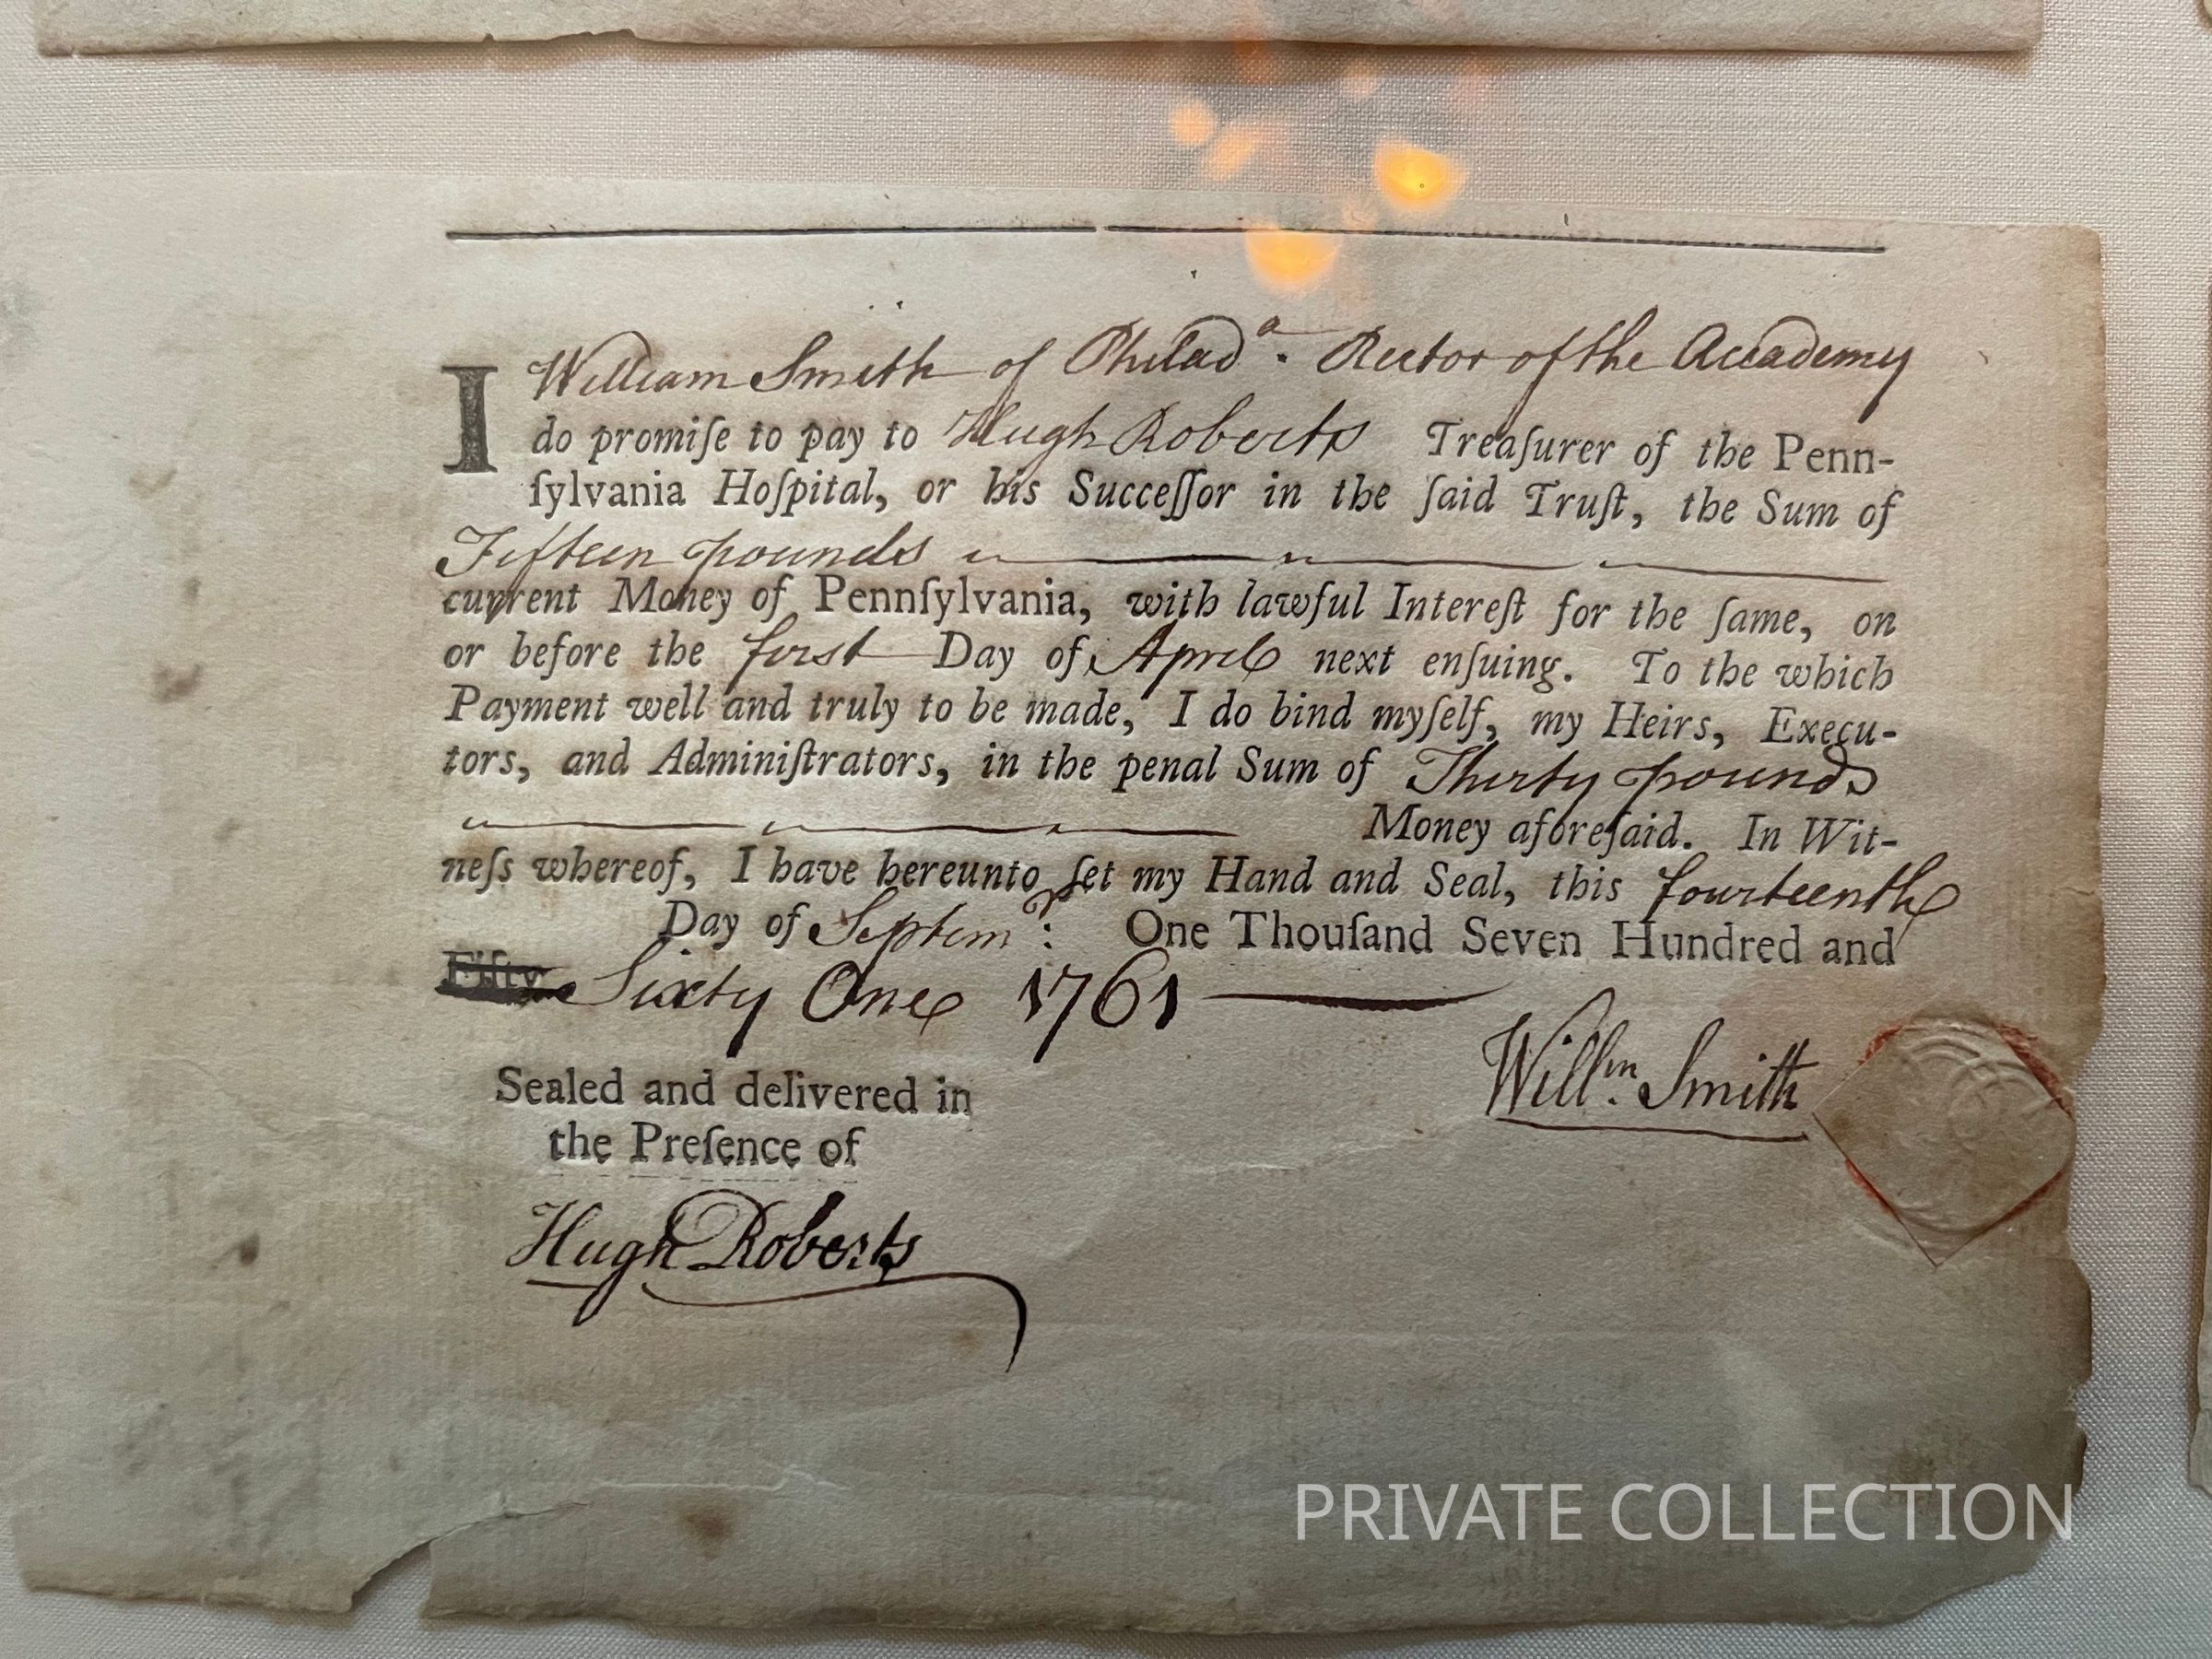 I William Smith of Philadᵃ. Rector of the Accademy
do promiſe to pay to Hugh Roberts Treaſurer of the Penn-
ſylvania Hoſpital, or his Succeſſor in the ſaid Truſt, the Sum of
Fifteen pounds
current Money of Pennſylvania, with lawful Intereſt for the ſame, on
or before the first Day of April next enſuing. To the which
Payment well and truly to be made, I do bind myſelf, my Heirs, Execu-
tors, and Adminiſtrators, in the penal Sum of Thirty pounds
Money aforeſaid. In Wit-
neſs whereof, I have hereunto ſet my Hand and Seal, this fourteenth
Day of Septemʳ: One Thouſand Seven Hundred and
Fifty Sixty One 1761
Willᵐ. Smith
Sealed and delivered in
the Preſence of
Hugh Roberts
PRIVATE COLLECTION